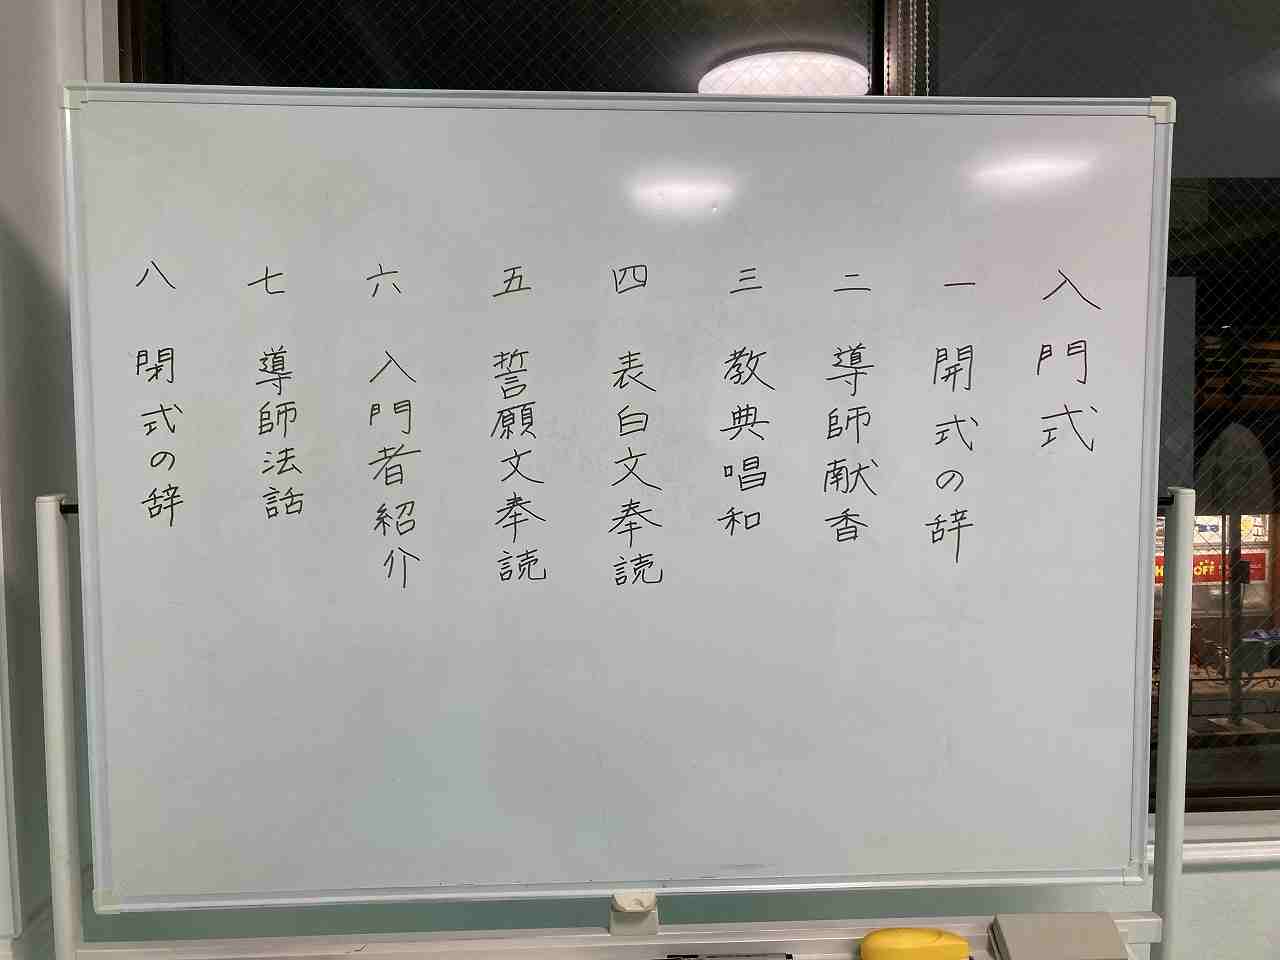 入門式
一 開式の辞
二 導師献香
三 教典唱和
四 表白文奉読
五 誓願文奉読
六 入門者紹介
七 導師法話
八 閉式の辞
OFF